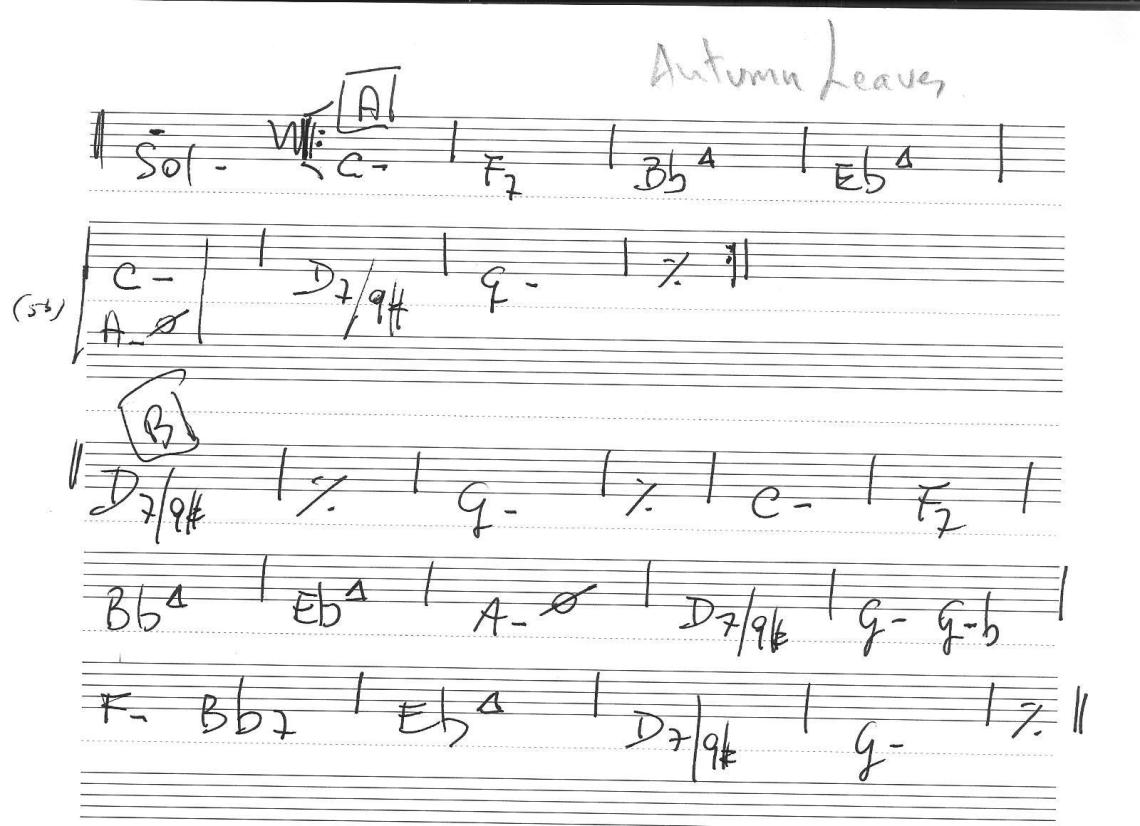 Autumn Leaves
A
Sol - C- | F7 | Bb△ | Eb△ |
C - | D7/9# | G - | ٪ :||
(5b) A-ø
B
|| D7/9# | ٪ | G- | ٪ | C - | F7 |
Bb△ | Eb△ | A-ø | D7/9# | G- G-b |
F- Bb7 | Eb△ | D7/9# | G- | ٪ ||